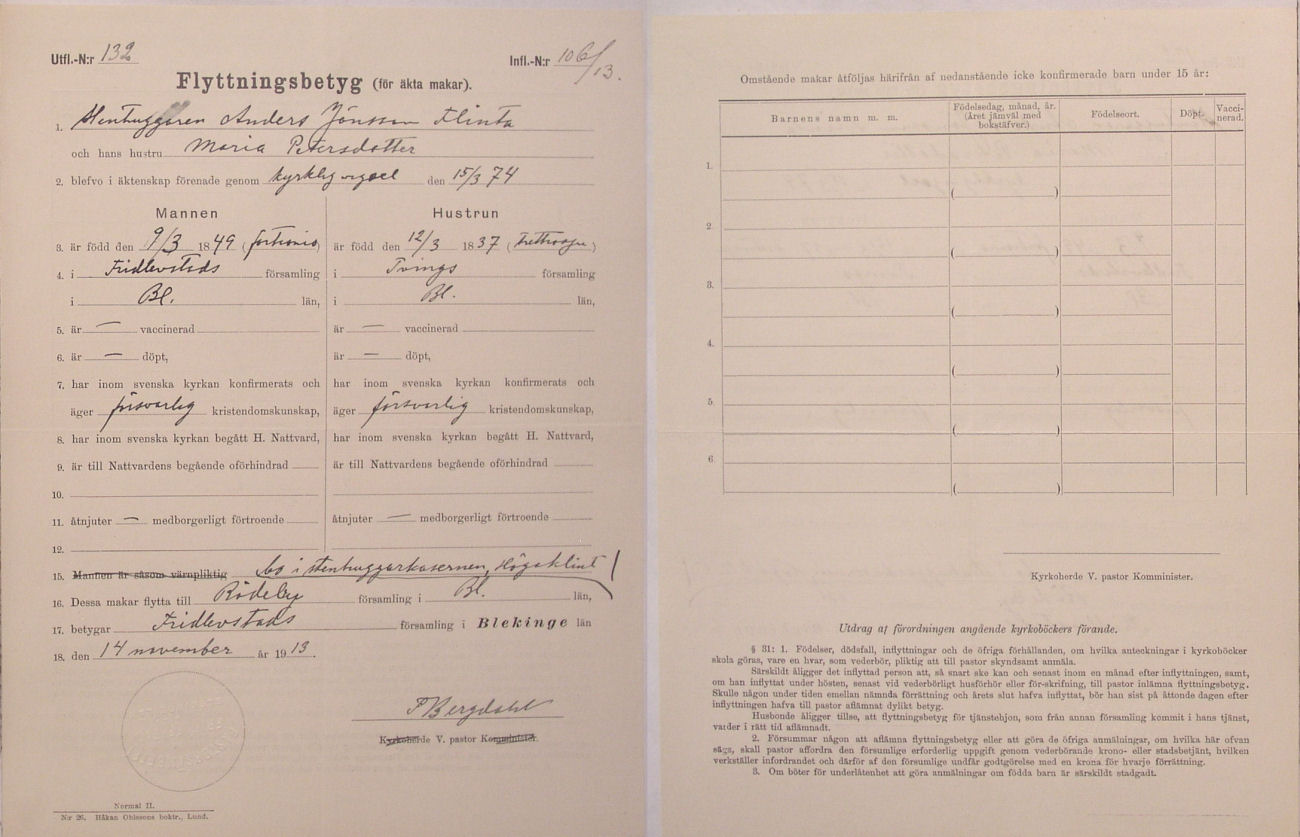 Utfl.-N:r 132
Infl.-N:r 106/13.
Flyttningsbetyg (för äkta makar).
1. Stenhuggaren Anders Jönsson Flinta
och hans hustru Maria Petersdotter
2. blefvo i äktenskap förenade genom kyrklig vigsel den 15/3 74
Mannen
3. är född den 9/3 1849 (fortionio)
4. i Fridlevstads församling
i Bl. län,
5. är — vaccinerad
6. är — döpt,
7. har inom svenska kyrkan konfirmerats och
äger försvarlig kristendomskunskap,
8. har inom svenska kyrkan begått H. Nattvard,
9. är till Nattvardens begående oförhindrad
10.
11. åtnjuter — medborgerligt förtroende
12.
Hustrun
är född den 12/3 1837 (trettiosju)
i Tvings församling
i Bl. län,
är — vaccinerad
är — döpt,
har inom svenska kyrkan konfirmerats och
äger försvarlig kristendomskunskap,
har inom svenska kyrkan begått H. Nattvard,
är till Nattvardens begående oförhindrad
åtnjuter — medborgerligt förtroende
15. Mannen är såsom värnpliktig bo i stenhuggarkasernen, Högaklint
16. Dessa makar flytta till Rödeby församling i Bl. län,
17. betygar Fridlevstads församling i Blekinge län
18. den 14 november år 1913.
F Bergdahl
Kyrkoherde V. pastor Komminister.
Normal II.
N:r 26. Håkan Ohlssons boktr., Lund.
Omstående makar åtföljas härifrån af nedanstående icke konfirmerade barn under 15 år:
Barnens namn m. m.
Födelsedag, månad, år.
(Året jämväl med
bokstäfver.)
Födelseort.
Döpt.
Vacci-
nerad.
1.
( )
2.
( )
3.
( )
4.
( )
5.
( )
6.
( )
Kyrkoherde V. pastor Komminister.
Utdrag af förordningen angående kyrkoböckers förande.
§ 31: 1. Födelser, dödsfall, inflyttningar och de öfriga förhållanden, om hvilka anteckningar i kyrkoböcker
skola göras, vare en hvar, som vederbör, pliktig att till pastor skyndsamt anmäla.
Särskildt åligger det inflyttad person att, så snart ske kan och senast inom en månad efter inflyttningen, samt,
om han inflyttat under hösten, senast vid vederbörligt husförhör eller för-skrifning, till pastor inlämna flyttningsbetyg.
Skulle någon under tiden emellan nämnda förrättning och årets slut hafva inflyttat, bör han sist på åttonde dagen efter
inflyttningen hafva till pastor aflämnat dylikt betyg.
Husbonde åligger tillse, att flyttningsbetyg för tjänstehjon, som från annan församling kommit i hans tjänst,
varder i rätt tid aflämnadt.
2. Försummar någon att aflämna flyttningsbetyg eller att göra de öfriga anmälningar, om hvilka här ofvan
sägs, skall pastor affordra den försumlige erforderlig uppgift genom vederbörande krono- eller stadsbetjänt, hvilken
verkställer infordrandet och därför af den försumlige undfår godtgörelse med en krona för hvarje förrättning.
3. Om böter för underlåtenhet att göra anmälningar om födda barn är särskildt stadgadt.